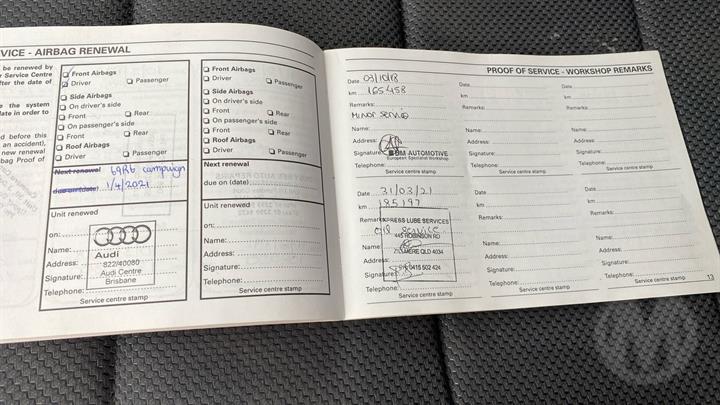 VICE - AIRBAG RENEWAL
be renewed by
r Service Centre
fter the date of
e the system
date in order to
d before this
an accident),
new renewal
bag Proof of
Front Airbags
Driver Passenger
Side Airbags
On driver's side
Front Rear
On passenger's side
Front Rear
Roof Airbags
Driver Passenger
Next renewal 69R6 campaign
due on (date) 1/4/2021
Unit renewed
on:
Name:
Address:
Signature:
Telephone:
Audi
822/40080
Audi Centre
Brisbane
Service centre stamp
Front Airbags
Driver Passenger
Side Airbags
On driver's side
Front Rear
On passenger's side
Front Rear
Roof Airbags
Driver Passenger
Next renewal
due on (date)
Unit renewed
on:
Name:
Address:
Signature:
Telephone:
Service centre stamp
PROOF OF SERVICE - WORKSHOP REMARKS
Date 03/10/18
km 165458
Remarks:
Minor Service
Name:
Address:
Signature:
AUTOMOTIVE
European Specialist Workshop
Telephone:
Service centre stamp
Date
km
Remarks:
Name:
Address:
Signature:
Telephone:
Service centre stamp
Date:
km
Remarks:
Name:
Address:
Signature:
Telephone:
Service centre stamp
Date 31/03/21
km 185197
Remarks
XPRESS LUBE SERVICES
oil service
445 ROBINSON RD
Name:
Address:
QLD 4034
Signature:
0415 502 424
Telephone:
Service centre stamp
Date:
km
Remarks:
Name:
Address:
Signature:
Telephone:
Service centre stamp
Date:
km
Remarks:
Name:
Address:
Signature:
Telephone:
Service centre stamp
13